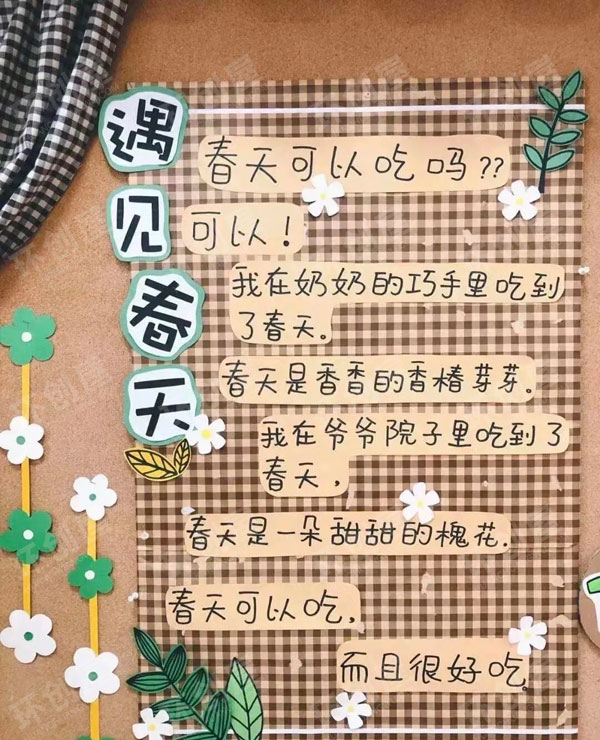 遇见春天
春天可以吃吗??
可以!
我在奶奶的巧手里吃到
了春天。
春天是香香的香椿芽芽。
我在爷爷院子里吃到了
春天,
春天是一朵甜甜的槐花.
春天可以吃,
而且很好吃。